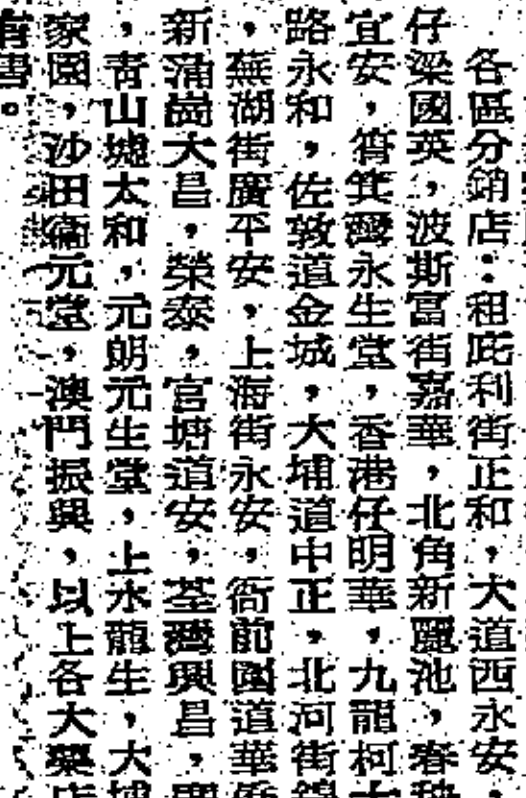 各區分銷店：租庇利街正和，大道西永安，
仔梁國英，波斯富街嘉華，北角新麗池，春秧
宜安，筲箕灣永生堂，香港仔明華，九龍柯士
路永和，佐敦道金城，大埔道中正，北河街錦
，蕪湖街廣平安，上海街永安，衙前圍道華僑
新蒲崗大昌，榮泰，官塘道安，荃灣興昌，
，青山墟太和，元朗元生堂，上水龍生，大埔
家園，沙田衞元堂，澳門振興，以上各大藥店
有售。